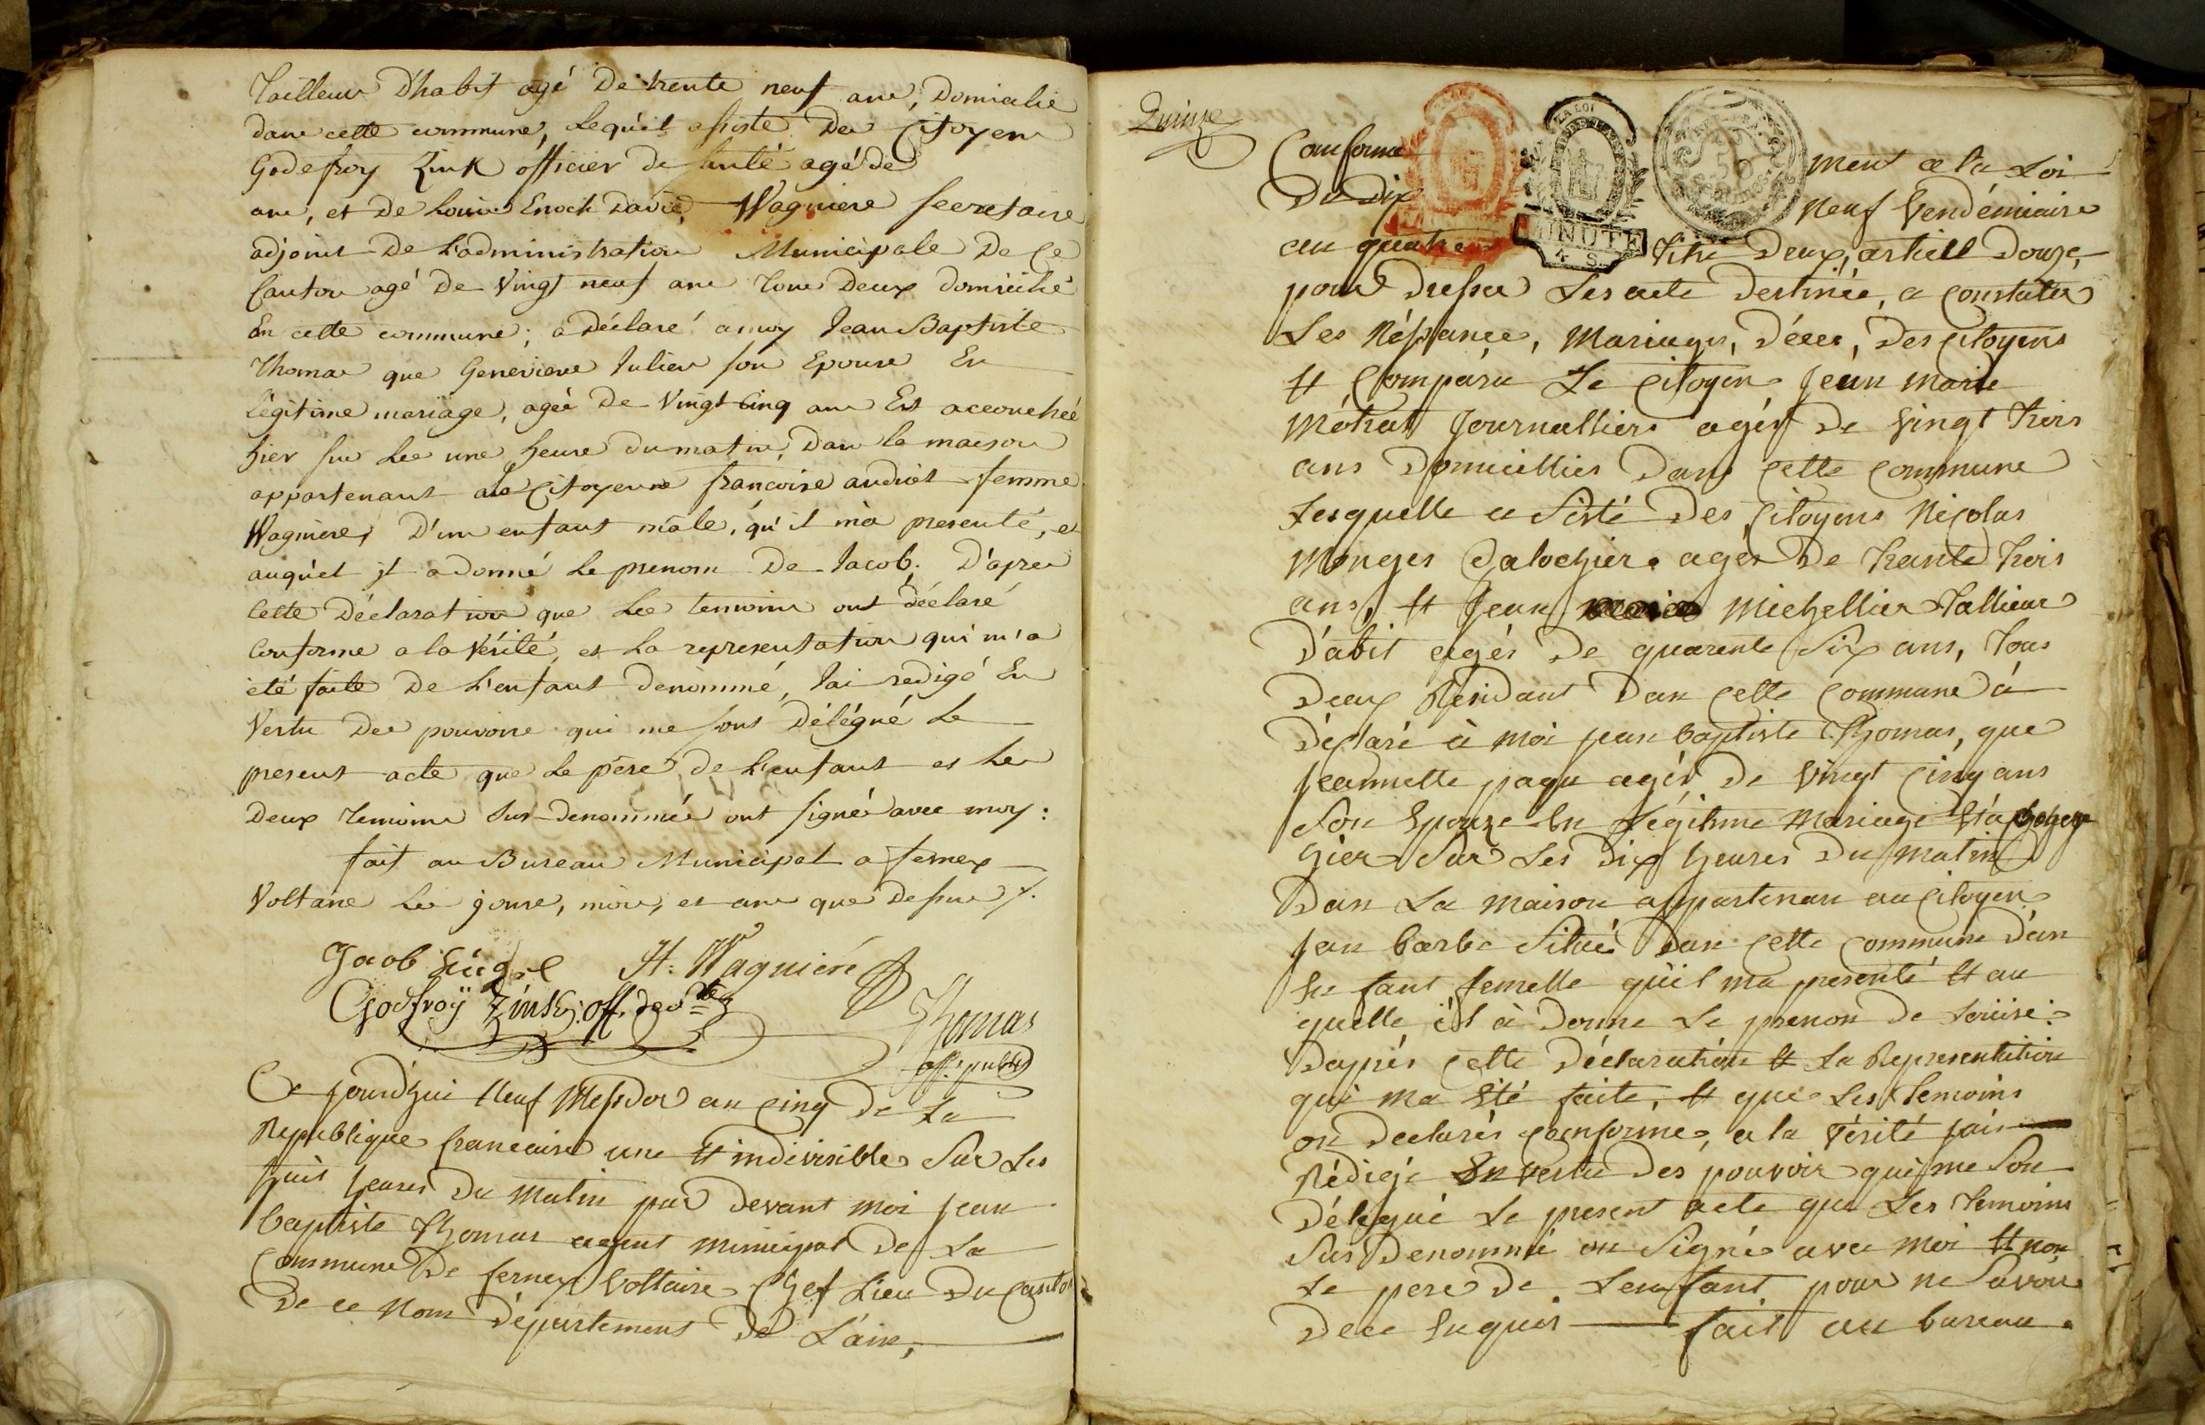 Tailleur D'habit agé De trente neuf ans, Domicilié
dans cette commune, Lequ'el assisté Des Citoyens
Godefroy Zink officier de santé agé de
ans, et De Louis Enoch David, Wagniere secretaire
adjoint De L'administration Municipale De Ce
Canton agé De Vingt neuf ans Tous Deux Domicilié
En cette commune; a Déclaré a moy Jean Baptiste
Thomas que Genevieve Julien son Epouse En
légitime mariage, agée De Vingt Cinq ans Est accouchée
hier sur Les une heure du matin, Dans la maison
appartenant ala Citoyenne françoise audriet femme
Wagniere, D'un enfant mâle, qu'il m'a presenté, et
auquel il a donné Le prenom De Jacob; D'apres
Cette Déclaration que Les temoins ont déclaré
Conforme a la Vérité, et La representation qui m'a
été faite De L'enfant denommé, Jai redigé En
Vertu Des pouvoirs qui me sont Délégué Le
present acte que Le pere de L'enfant et Les
Deux temoins sus-denommés ont signé avec moy:
fait au Bureau Municipal a fernex
Voltaire Les jours, mois, et ans que Dessus /.
Jacob H: Wagniere
Godfroÿ Zink: off. de s.te
Thomas
off. public
Ce jourdhui Neuf Messidor an Cinq De La
Republique francaise une Et indivisible Sur Les
huit heures Du Matin par Devant Moi Jean
Baptiste Thomas agent municipal De La
Commune De fernex Voltaire Chef Lieu Du Canton
De ce Nom Département De L'ain,
Quinze
Conforme ment a la Loi
Du Dix Neuf Vendémiaire
an quatre Titre Deux, article Douze,
LA LOI
MINUTE
4 S.
50
pour Dresser Les acte Destinée, a Constater
Les Néssance, Mariages, Décès, Des Citoyens
Et Comparu Le Citoyen Jean Marie
Métral Journallier agés De Vingt trois
ans Domicillier Dans Cette Commune
Lesquelle a Sisté Des Citoyens Nicolas
Monges agés De trante trois
ans, Et Jean Michellier Tallieur
D'abit agés De quarente Six ans, tous
Deux Résidant Dan Cette Commune à
Déclaré à Moi Jean baptiste Thomas, que
Jeannette agés De Vingt Cinq ans
Son Epouze En Légitime Mariage
hier Sur Les Dix heures Du Matin
Dan La Maison appartenan au Citoyen
Jean barbe Situé Dan Cette Commune Dun
En fant femelle qu'il ma presenté Et au
quelle il à Donne Le prenon De Louise
Dapres Cette Déclaration Et La Representation
qui Ma Eté faite, Et que Les temoins
on Declarés Conforme, a la Vérité jais
Rédigé En Vertu Des pouvoir qui me Son
Délégué Le present acte que Les temoins
Sus Denommé on Signé avec Moi Et non
Le pere De Lenfant pour ne Savoir
Dece Enquis fait au bureau